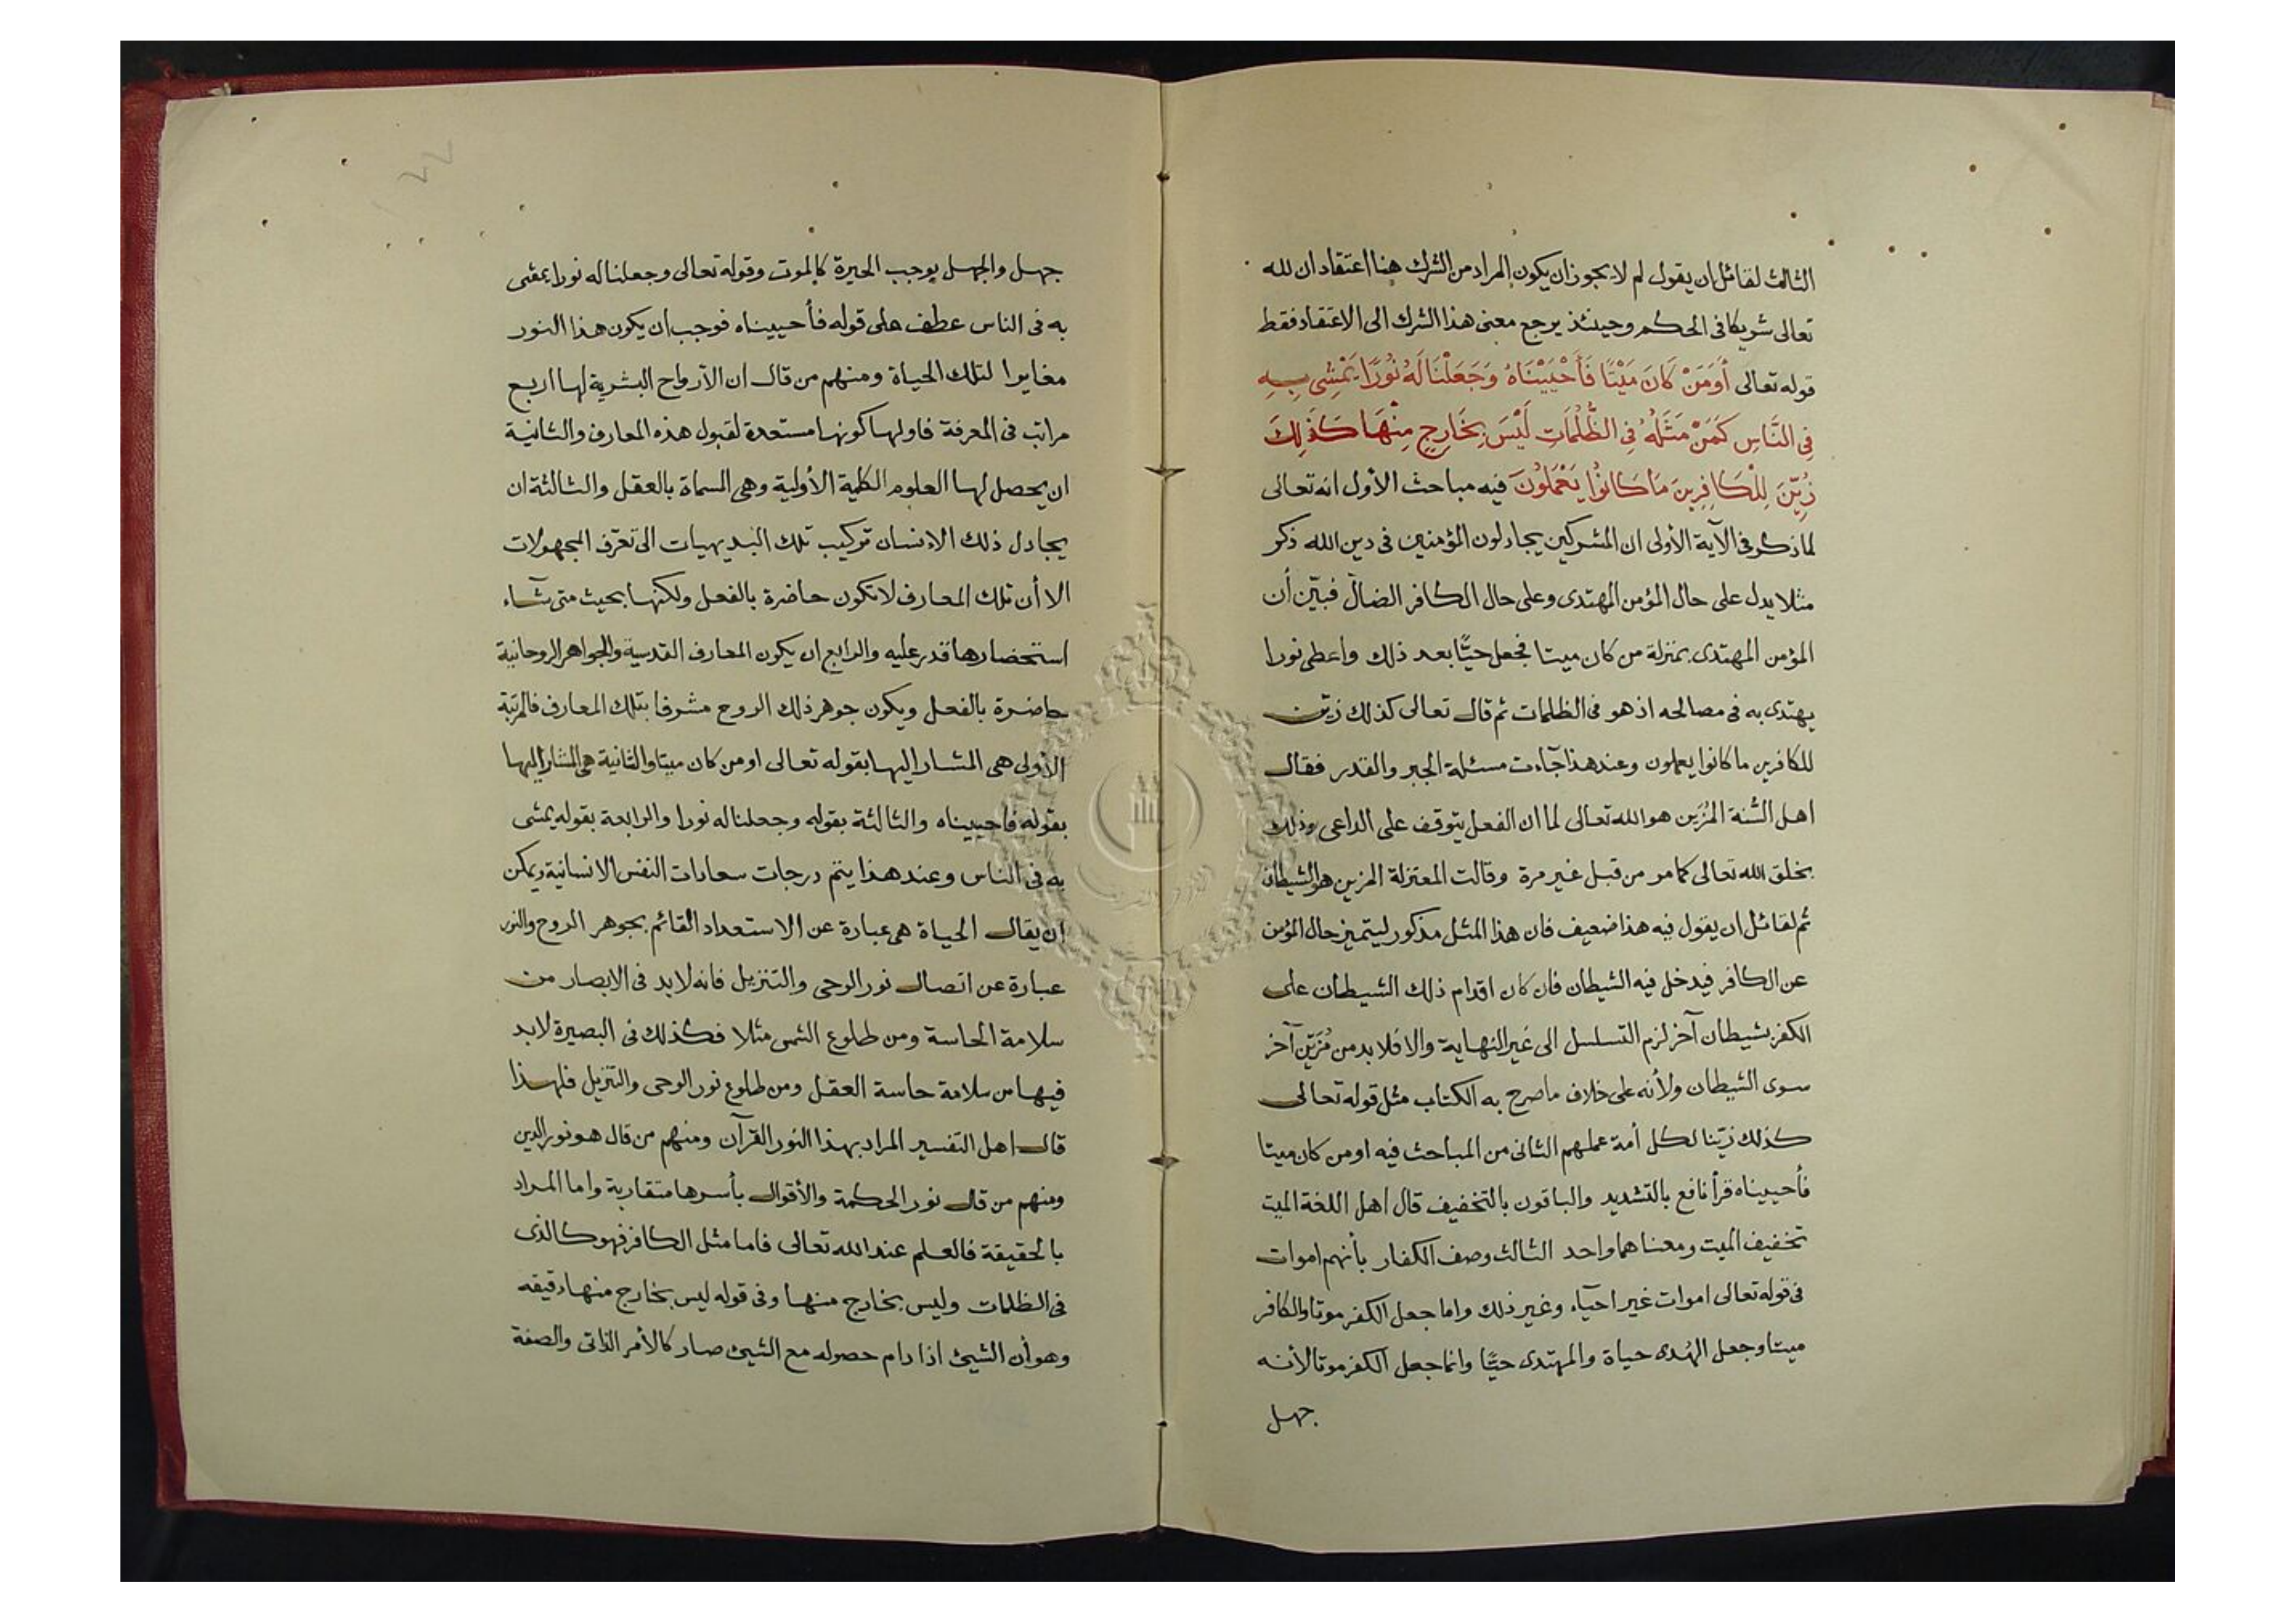 الثالث لقائل ان يقول لم لا يجوز ان يكون المراد من الشرك هنا اعتقاد ان لله
تعالى شريكا فى الحكم وحينئذ يرجع معنى هذا الشرك الى الاعتقاد فقط
قوله تعالى أَوَمَنْ كَانَ مَيْتًا فَأَحْيَيْنَاهُ وَجَعَلْنَا لَهُ نُورًا يَمْشِى بِهِ
فِى النَّاسِ كَمَنْ مَثَلُهُ فِى الظُّلُمَاتِ لَيْسَ بِخَارِجٍ مِنْهَا كَذَلِكَ
زُيِّنَ لِلْكَافِرِينَ مَا كَانُوا يَعْمَلُونَ فيه مباحث الأول انه تعالى
لما ذكر فى الآية الأولى ان المشركين يجادلون المؤمنين فى دين الله ذكر
مثلا يدل على حال المؤمن المهتدى وعلى حال الكافر الضالّ فبيّن أن
المؤمن المهتدى بمنزلة من كان ميتا فجعل حيًّا بعد ذلك واعطى نورا
يهتدى به فى مصالحه اذ هو فى الظلمات ثم قال تعالى كذلك زيّن
للكافرين ما كانوا يعملون وعند هذا جآءت مسئلة الجبر والقدر فقال
اهل السُّنة المُزَين هو الله تعالى لما ان الفعل يتوقف على الداعى وذلك
بخلق الله تعالى كما مر من قبل غير مرة وقالت المعتزلة المزين هو الشيطان
ثم لقائل ان يقول فيه هذا ضعيف فان هذا المثل مذكور ليتميز حال المؤمن
عن الكافر فيدخل فيه الشيطان فان كان اقدام ذلك الشيطان على
الكفر بشيطان آخر لزم التسلسل الى غير النهاية والا فلا بد من مُزَيِّن آخر
سوى الشيطان ولأنه على خلاف ما صرح به الكتاب مثل قوله تعالى
كذلك زيّنا لكل أمة عملهم الثانى من المباحث فيه اومن كان ميتا
فأحييناه قرأ نافع بالتشديد والباقون بالتخفيف قال اهل اللغة الميت
تخفيف الميت ومعناهما واحد الثالث وصف الكفار بأنهم اموات
فى قوله تعالى اموات غير احيآء وغير ذلك واما جعل الكفر موتا والكافر
ميتا وجعل الهُدى حياة والمهتدى حيًّا وانما جعل الكفر موتا لأنه
جهل
جهل والجهل يوجب الحيرة كالموت وقوله تعالى وجعلنا له نورا يمشى
به فى الناس عطف على قوله فأحييناه فوجب ان يكون هذا النور
مغايرا لتلك الحياة ومنهم من قال ان الأرواح البشرية لها اربع
مراتب فى المعرفة فاولها كونها مستعدة لقبول هذه المعارف والثانية
ان يحصل لها العلوم الكلية الأولية وهى المسماة بالعقل والثالثة ان
يجادل ذلك الانسان تركيب تلك البديهيات الى تعرّف المجهولات
الا أن تلك المعارف لا تكون حاضرة بالفعل ولكنها بحيث متى شآء
استحضارها قدر عليه والرابع ان يكون المعارف القدسية والجواهر الروحانية
حاضرة بالفعل ويكون جوهر ذلك الروح مشرفا بتلك المعارف فالمرتبة
الأولى هى المشار اليها بقوله تعالى اومن كان ميتا والثانية هى المشار اليها
بقوله فاحييناه والثالثة بقوله وجعلنا له نورا والرابعة بقوله يمشى
به فى الناس وعند هذا يتم درجات سعادات النفس الانسانية ويمكن
ان يقال الحياة هى عبارة عن الاستعداد القائم بجوهر الروح والنور
عبارة عن اتصال نور الوحى والتنزيل فانه لا بد فى الابصار من
سلامة الحاسة ومن طلوع الشمس مثلا فكذلك فى البصيرة لا بد
فيها من سلامة حاسة العقل ومن طلوع نور الوحى والتنزيل فلهذا
قال اهل التفسير المراد بهذا النور القرآن ومنهم من قال هو نور الدين
ومنهم من قال نور الحكمة والأقوال بأسرها متقاربة واما المراد
بالحقيقة فالعلم عند الله تعالى فاما مثل الكافر فهو كالذى
فى الظلمات وليس بخارج منها وفى قوله ليس بخارج منها دقيقه
وهو أن الشيئ اذا دام حصوله مع الشيئ صار كالأمر الذاتى والصفة